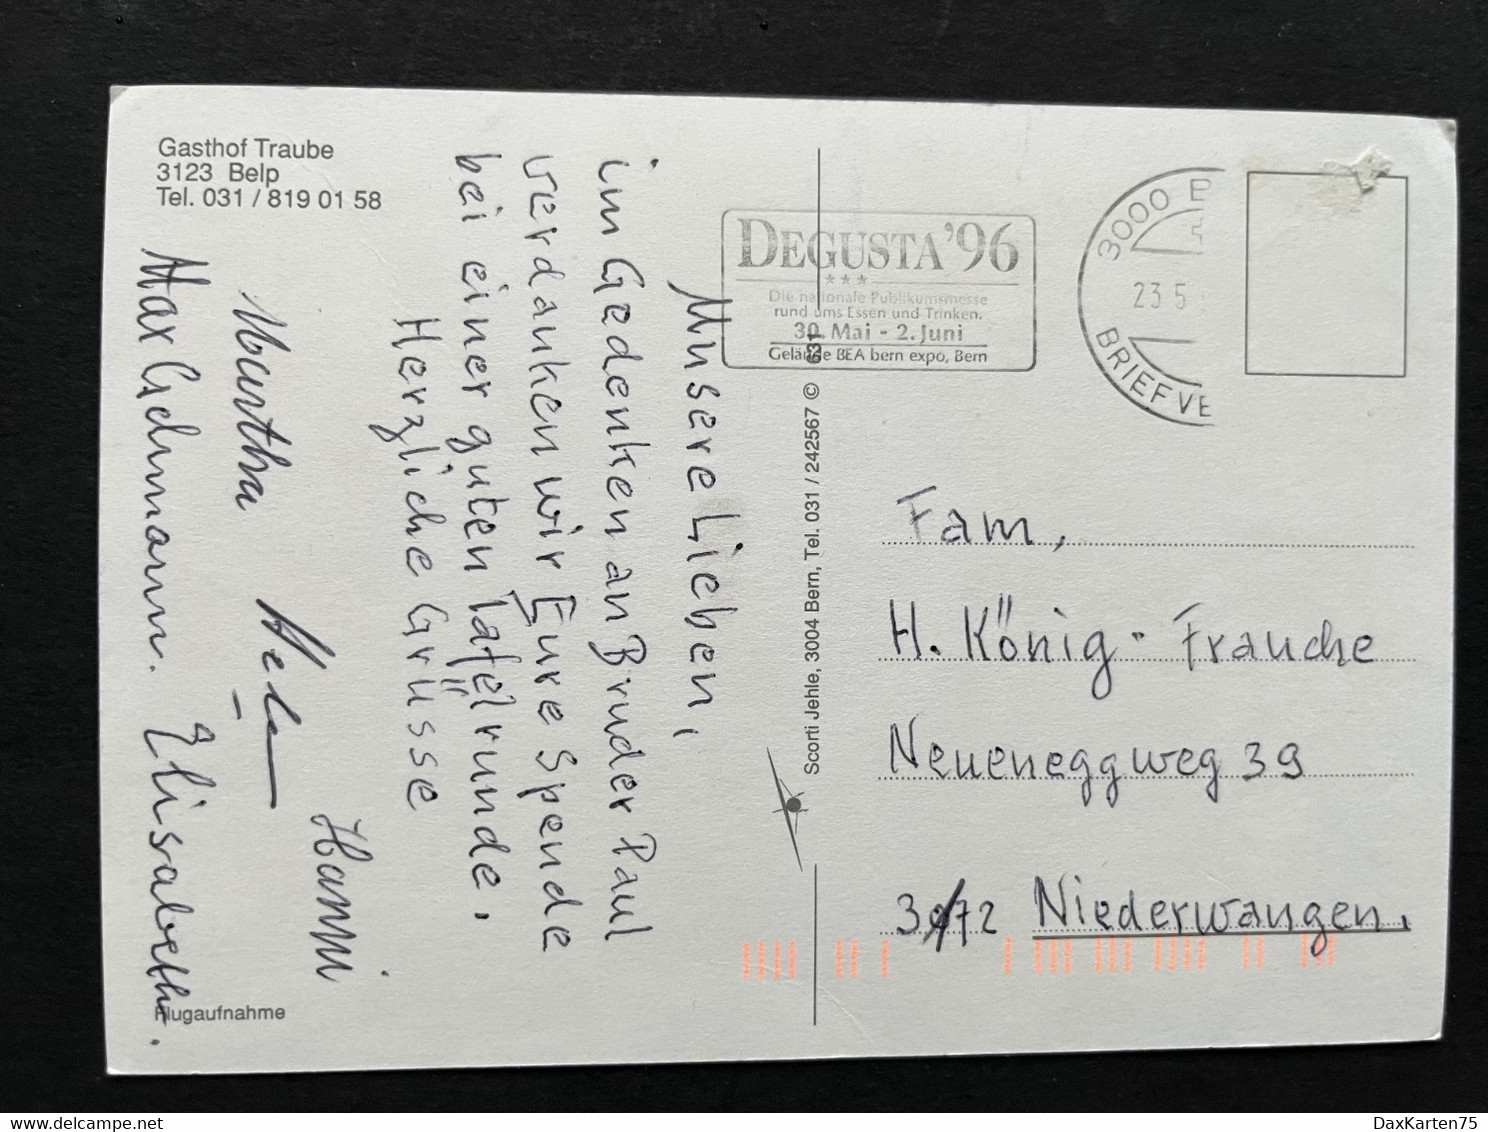 Gasthof Traube
3123 Belp
Tel. 031 / 819 01 58
Unsere Lieben,
im Gedenken an Bruder Paul
verdanken wir Eure Spende
bei einer guten Tafelrunde.
Herzliche Grüsse
Hanni
Martha Hele
Max Gehmann. Elisabeth.
Flugaufnahme
Scorti Jehle, 3004 Bern, Tel. 031 / 242567 © 631
DEGUSTA '96
***
Die nationale Publikumsmesse
rund ums Essen und Trinken.
30. Mai - 2. Juni
Gelände BEA bern expo, Bern
3000 B
23 5
BRIEFVE
Fam,
H. König - Frauche
Neueneggweg 39
3172 Niederwangen.
delcampe.net
DaxKarten75